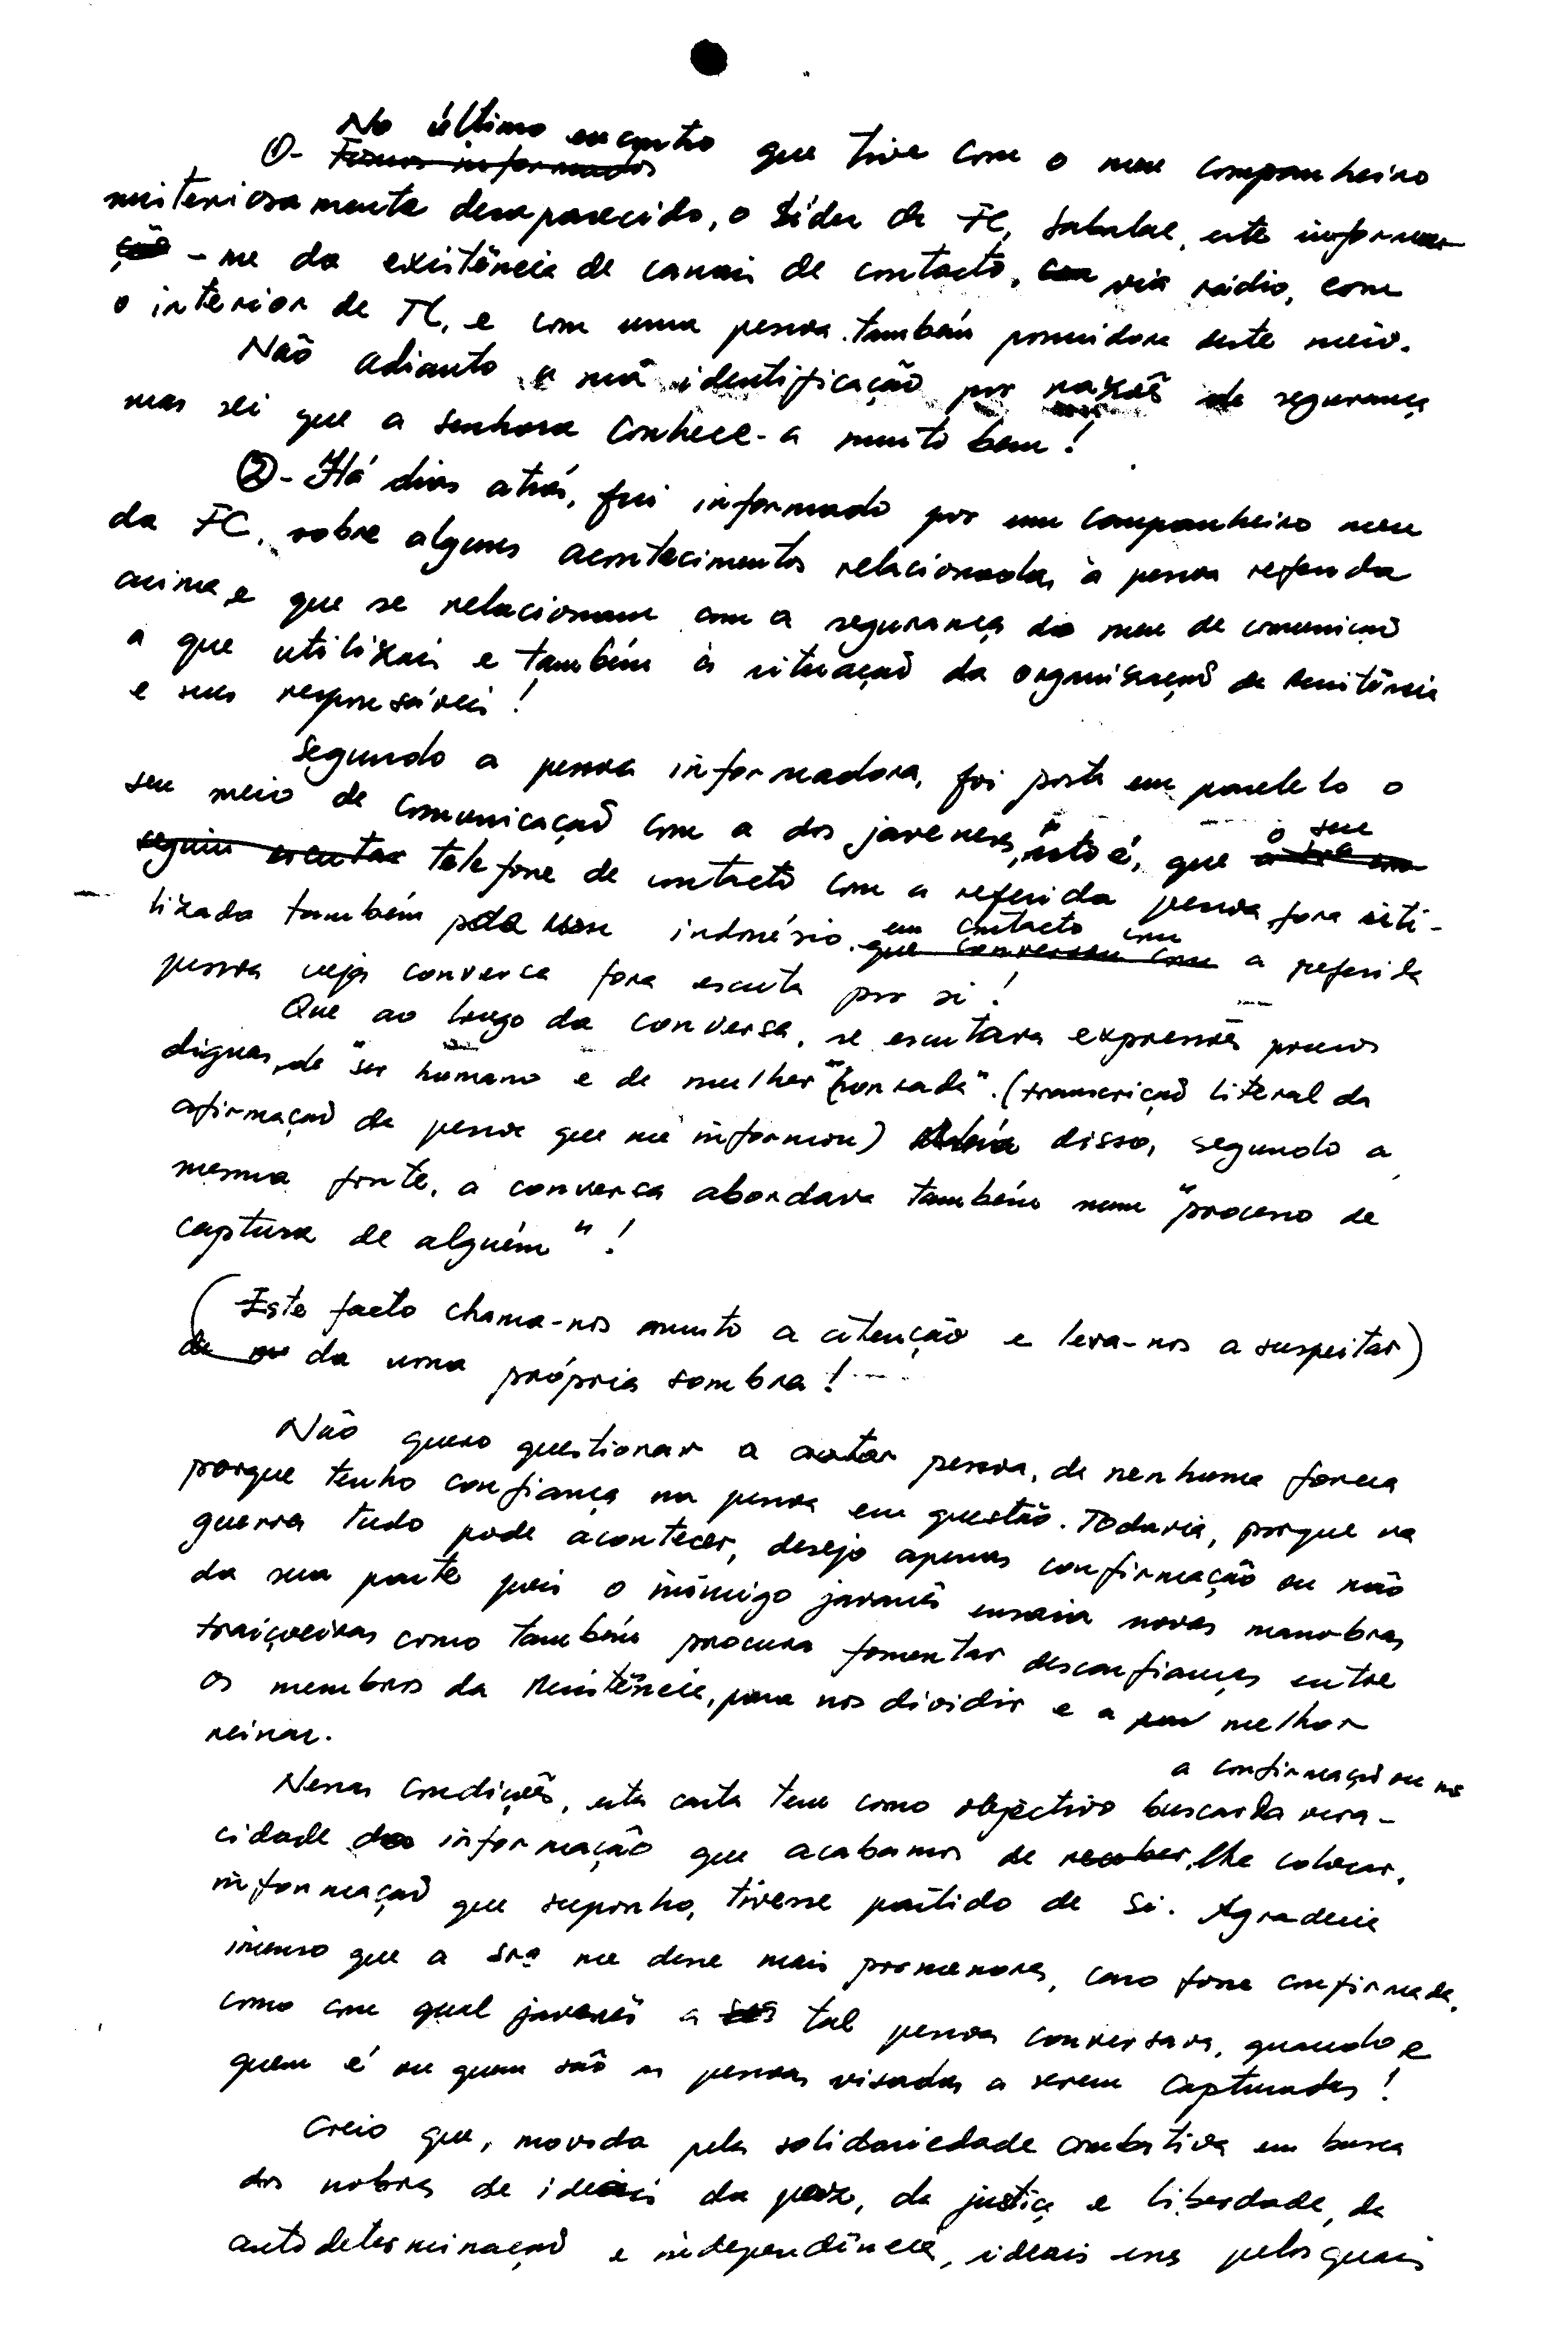 No último encontro que tive com o meu companheiro
①- Fomos informados
misteriosamente desaparecido, o Líder da FC, Sabalae, este informou
-me da existência de canais de contacto, via rádio, com
o interior de TL, e com uma pessoa também possuidora deste meio.
Não adianto a sua identificação por razões de segurança
mas sei que a senhora conhece-a muito bem!
②- Há dias atrás, fui informado por um companheiro meu
da FC, sobre alguns acontecimentos relacionados à pessoa referida
acima, e que se relacionam com a segurança do meio de comunicaçã
o que utilizais e também à situação da organização da Resistência
e seus responsáveis!
Segundo a pessoa informadora, foi posta em paralelo o
seu meio de comunicação com a dos javaneses, isto é, que o seu
seguiu escutar telefone de contacto com a referida pessoa fora uti-
lizada também pela indonésio em contacto com
que conversou com a referida
pessoa cuja conversa fora escuta por si!
Que ao longo da conversa, se escutara expressões pouco
dignas, de "ser humano e de mulher "honrada". (transcrição literal da
afirmação da pessoa que me informou) Além disso, segundo a
mesma fonte, a conversa abordava também num "processo de
captura de alguém"!
(Este facto chama-nos muito a atenção e leva-nos a suspeitar)
da uma própria sombra!
Não quero questionar a pessoa, de nenhuma forma
porque tenho confiança na pessoa em questão. Todavia, porque na
guerra tudo pode acontecer, desejo apenas confirmação ou não
da sua parte pois o inimigo javanês ensaia novas manobras
traiçoeiras como também procura fomentar desconfianças entre
os membros da Resistência, para nos dividir e a melhor
reinar.
a confirmação ou não
Nessas condições, esta carta tem como objectivo buscar da vera-
cidade da informação que acabamos de receber, lhe colocar,
informação que suponho, tivesse partido de Si. Agradecia
imenso que a Srª me desse mais promenores, caso fosse confirmada,
como com qual javanês a tal pessoa conversara, quando e
quem é ou quem são as pessoas visadas a serem capturadas!
Creio que, movida pela solidariedade combativa em busca
dos nobres de ideais da paz, da justiça e liberdade, da
autodeterminação e independência, ideais esses pelos quais